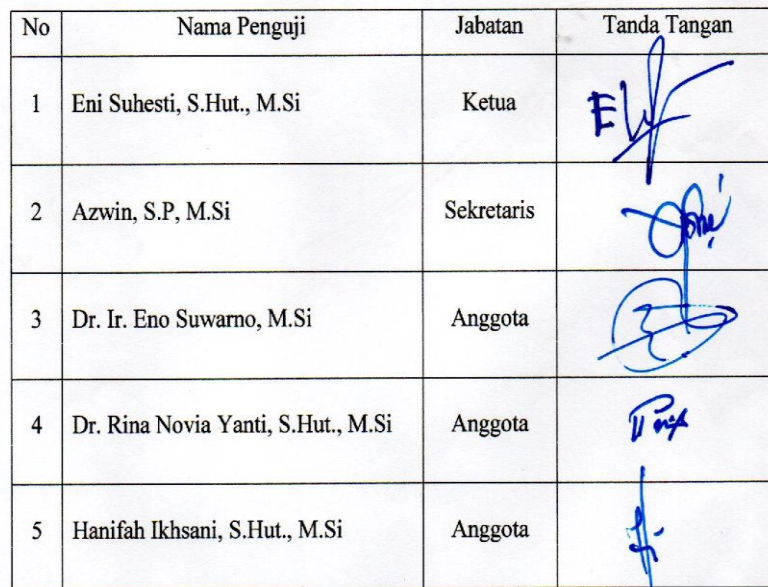 No Nama Penguji Jabatan Tanda Tangan
1 Eni Suhesti, S.Hut., M.Si Ketua
2 Azwin, S.P, M.Si Sekretaris
3 Dr. Ir. Eno Suwarno, M.Si Anggota
4 Dr. Rina Novia Yanti, S.Hut., M.Si Anggota
5 Hanifah Ikhsani, S.Hut., M.Si Anggota